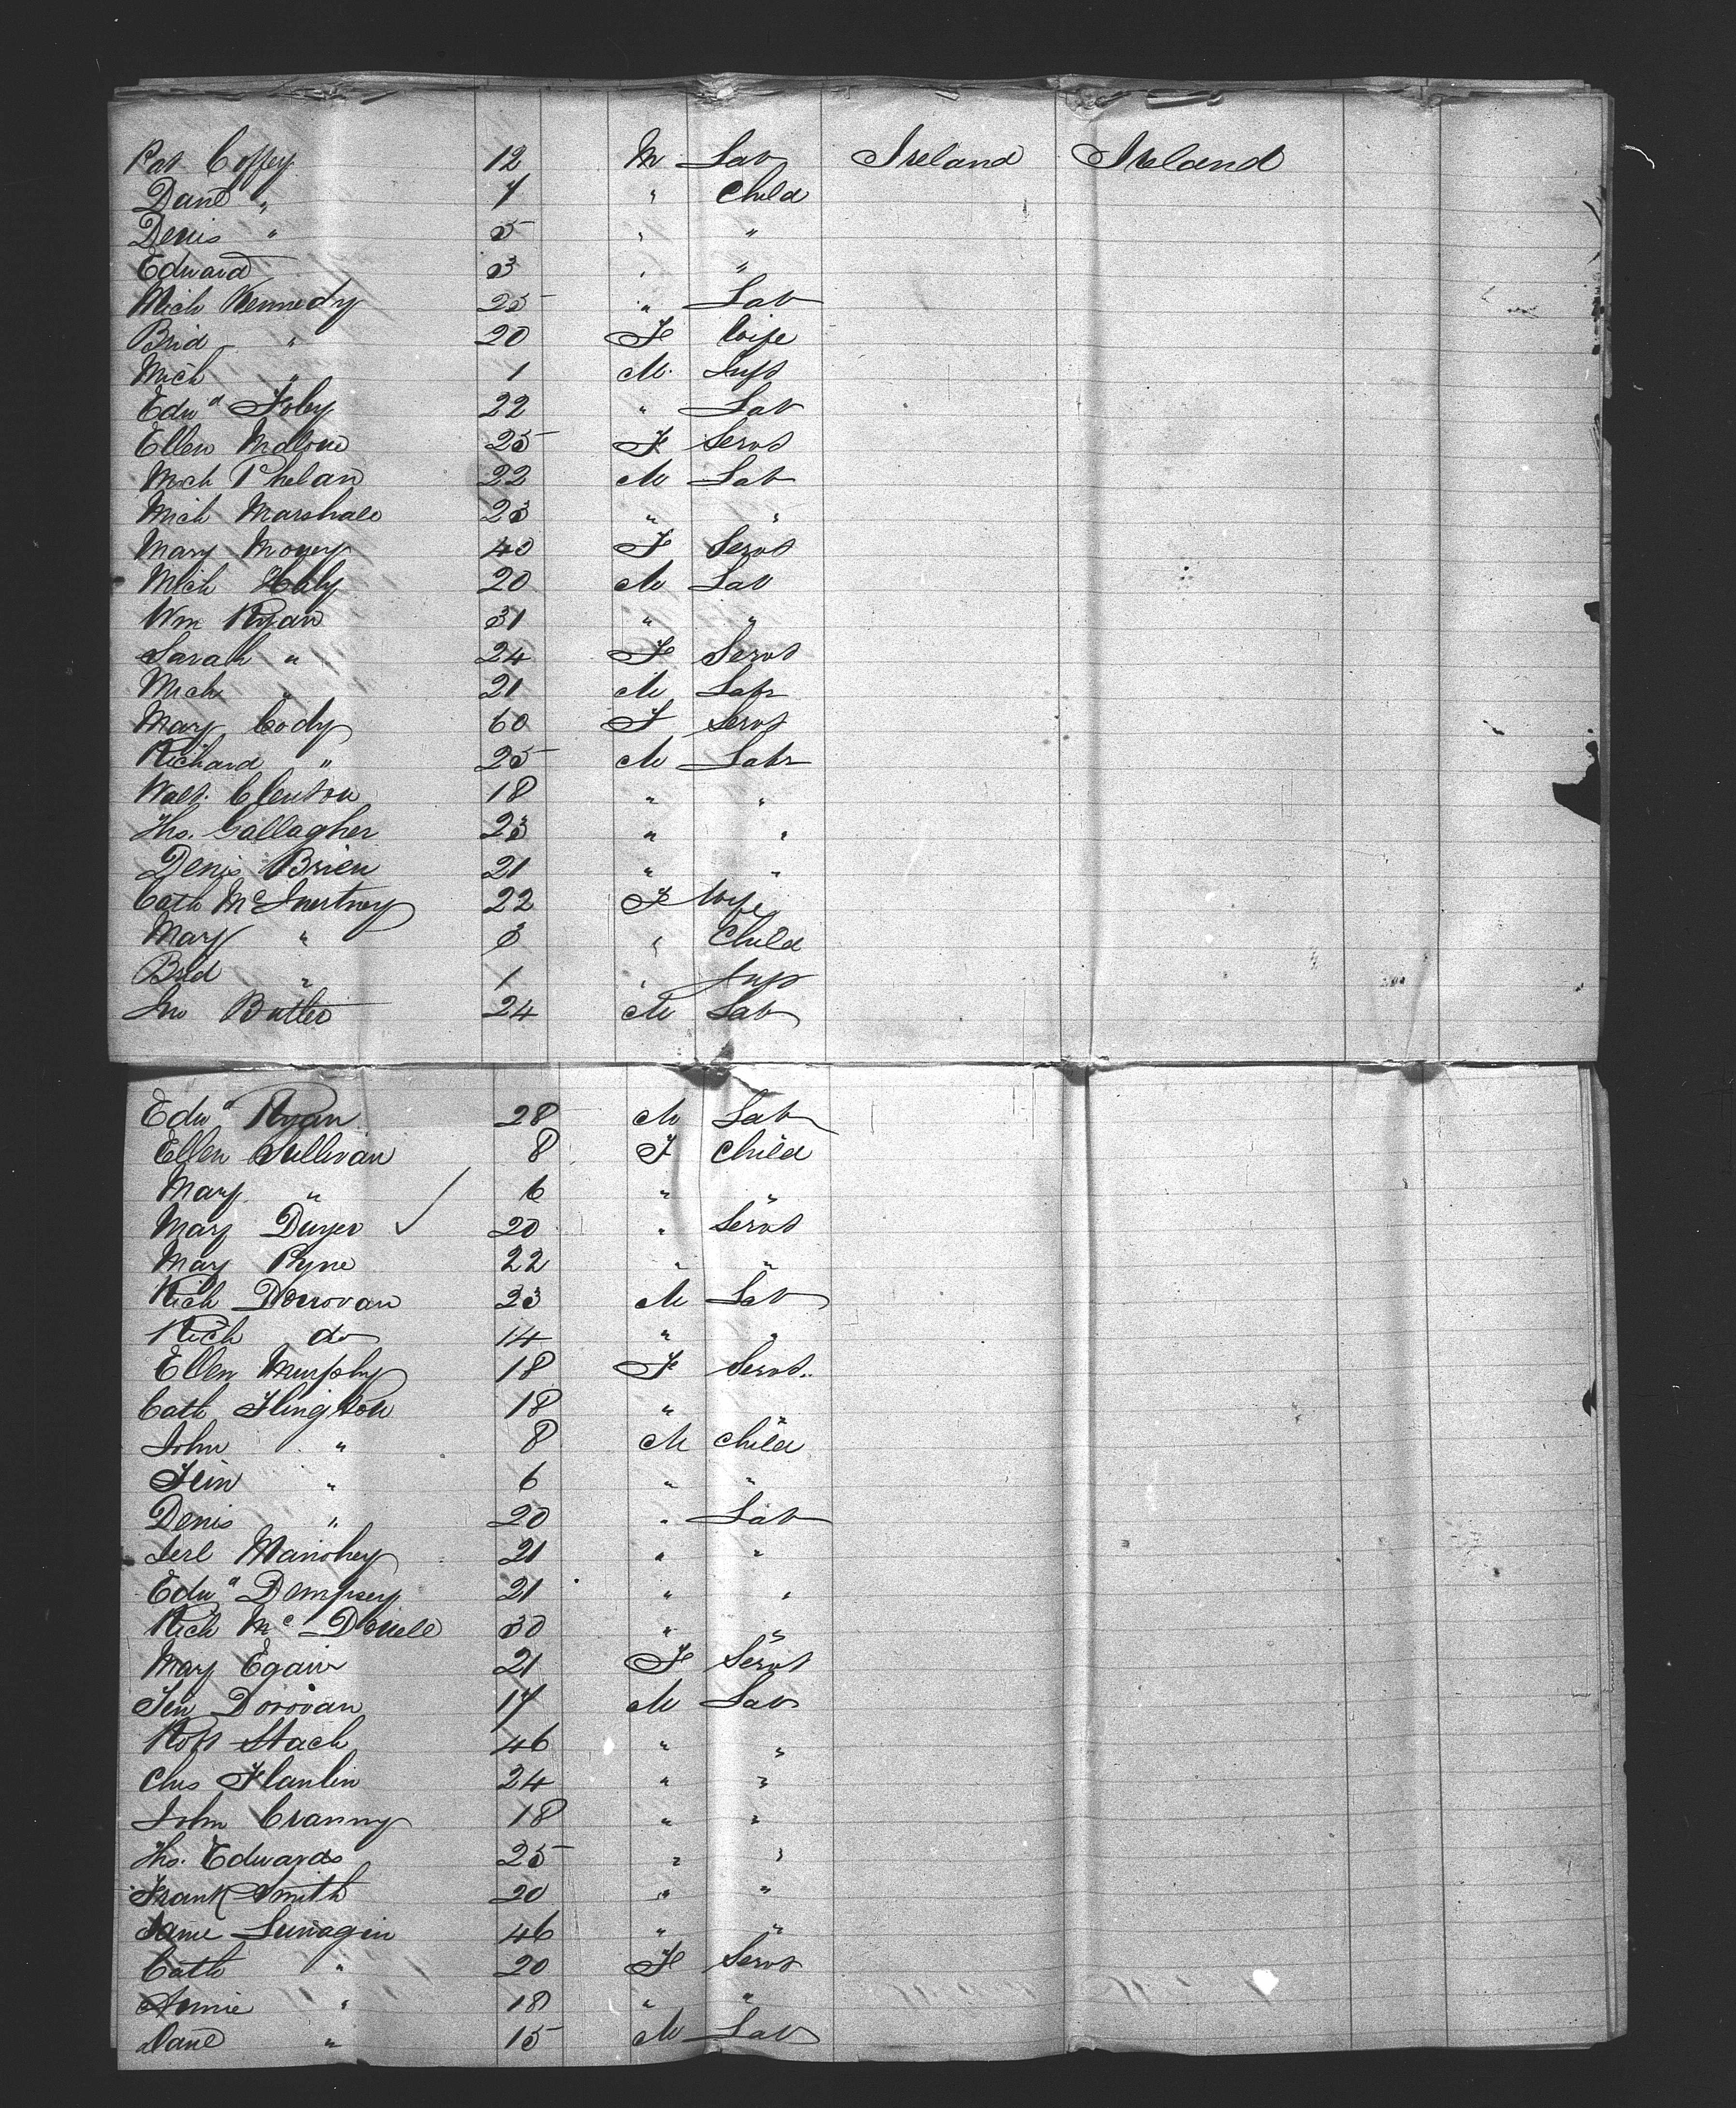 Pat Coffey 12 M Lab Ireland Ireland
Danl " 7 " Child
Denis " 5 " "
Edward 3 " "
Mich Kennedy 25 " Lab
Brid " 20 F Wife
Mich " 1 M. Inft
Edwd Foley 22 " Lab
Ellen Malone 25 F Servt
Mich Phelan 22 M Lab
Mich Marshall 23 " "
Mary 40 F Servt
Mich Haly 20 M Lab
Wm Ryan 31 " "
Sarah " 24 F Servt
Mich " 21 M Labr
Mary Cody 60 F Servt
Richard " 25 M Labr
Walt. Clenton 18 " "
Tho. Gallagher 23 " "
Denis Brien 21 " "
Cath McInertney 22 F Wife
Mary " 3 " Child
Brid " 1 " Inft
Jno Butler 24 M Lab
Edwd Ryan 28 M Lab
Ellen Sullivan 8 F Child
Mary " 6 " "
Mary Dwyer ✓ 20 " Servt
Mary Pyne 22 " "
Rich Donovan 23 M Lab
Rich do 14 " "
Ellen Murphy 18 F Servt
Cath 18 " "
John " 8 M Child
" 6 " "
Denis " 20 " Lab
21 " "
Edwd Dempsey 21 " "
Rich Mc 30 " "
Mary Egan 21 F Servt
Donovan 17 M Lab
Robt Stack 46 " "
Chs Hanlin 24 " "
John Cranny 18 " "
Tho. Edwards 25 " "
Frank Smith 20 " "
Jame 46 " "
Cath " 20 F Servt
Annie " 18 " "
Danl " 15 M Lab